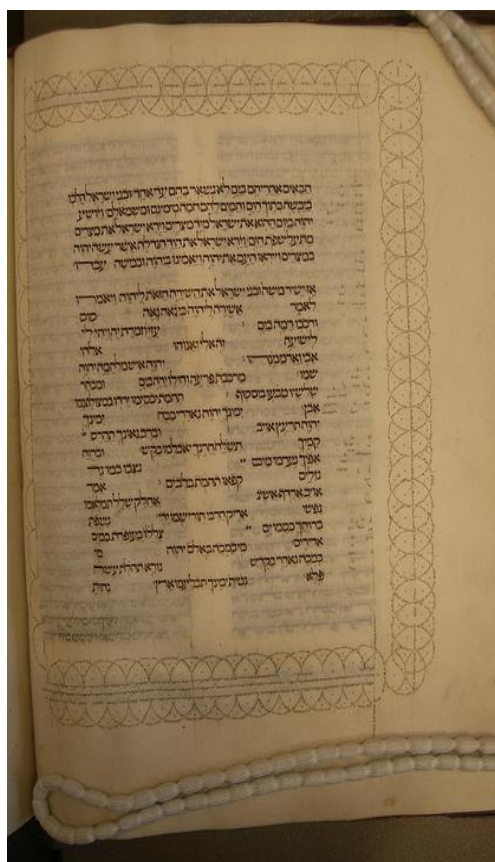 הבאים אחריהם בים לא נשאר בהם עד אחד ובני ישראל הלכו
ביבשה בתוך הים והמים להם חמה מימינם ומשמאלם ויושע
יהוה ביום ההוא את ישראל מיד מצרים וירא ישראל את מצרים
מת על שפת הים וירא ישראל את היד הגדלה אשר עשה יהוה
במצרים וייראו העם את יהוה ויאמינו ביהוה ובמשה עבדו
אז ישיר משה ובני ישראל את השירה הזאת ליהוה ויאמרו
לאמר אשירה ליהוה כי גאה גאה סוס
ורכבו רמה בים עזי וזמרת יה ויהי לי
לישועה זה אלי ואנוהו אלהי
אבי וארממנהו יהוה איש מלחמה יהוה
שמו מרכבת פרעה וחילו ירה בים ומבחר
שלשיו טבעו בים סוף תהמת יכסימו ירדו במצולת כמו
אבן ימינך יהוה נאדרי בכח ימינך
יהוה תרעץ אויב וברב גאונך תהרס
קמיך תשלח חרנך יאכלמו כקש וברוח
אפיך נערמו מים נצבו כמו נד
נזלים קפאו תהמת בלב ים אמר
אויב ארדף אשיג אחלק שלל תמלאמו
נפשי אריק חרבי תורישמו ידי נשפת
ברוחך כסמו ים צללו כעופרת במים
אדירים מי כמכה באלם יהוה מי
כמכה נאדר בקדש נורא תהלת עשה
פלא נטית ימינך תבלעמו ארץ נחית